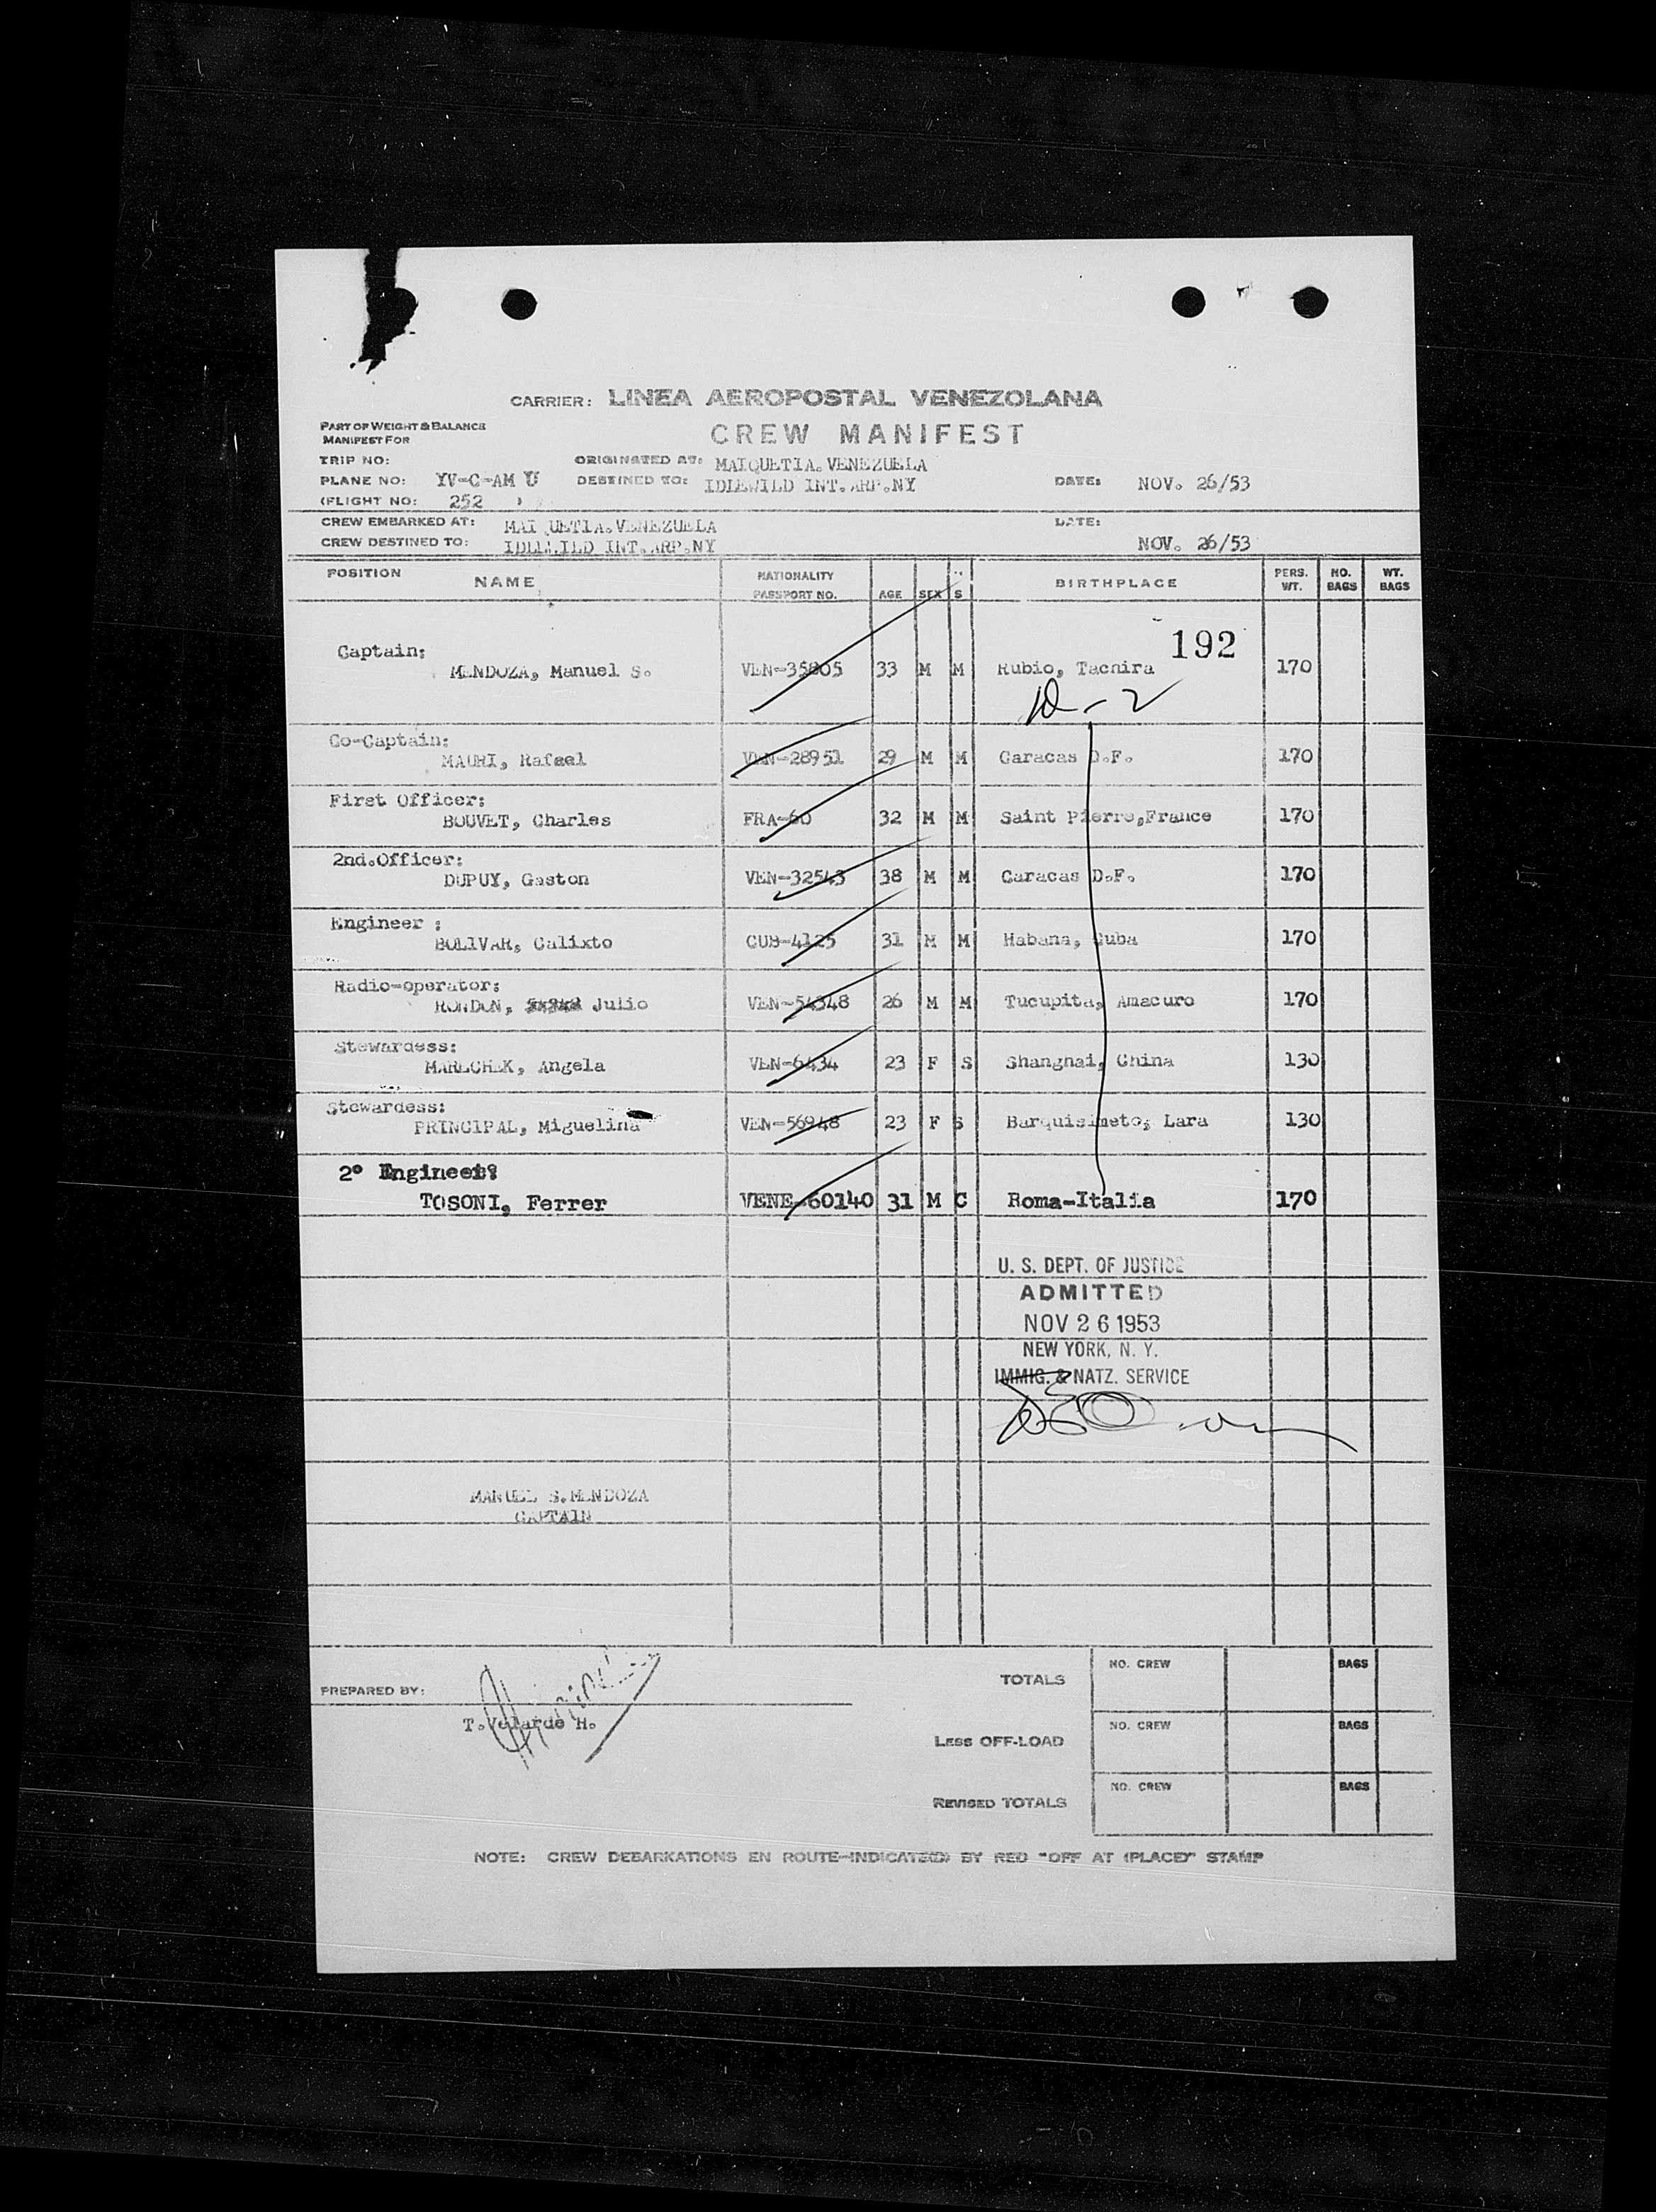 CARRIER: LINEA AEROPOSTAL VENEZOLANA
PART OF WEIGHT & BALANCE
MANIFEST FOR
CREW MANIFEST
TRIP NO:
ORIGINATED AT: MAIQUETIA. VENEZUELA
PLANE NO: YV-C-AM U DESTINED TO: IDLEWILD INT. ARP.NY DATE: NOV. 26/53
(FLIGHT NO: 252 )
CREW EMBARKED AT: MAI UETIA.VENEZUELA DATE:
CREW DESTINED TO: IDLEWILD INT.ARP.NY NOV. 26/53
POSITION NAME NATIONALITY PASSPORT NO. AGE SEX S BIRTHPLACE PERS. WT. NO. BAGS WT. BAGS
192
Captain:
MENDOZA, Manuel S. VEN-35805 33 M M Rubio, Tachira 170
D-2
Co-Captain:
MAURI, Rafael VEN-28951 29 M M Caracas D.F. 170
First Officer:
BOUVET, Charles FRA-60 32 M M Saint Pierre,France 170
2nd.Officer:
DUPUY, Gaston VEN-32543 38 M M Caracas D.F. 170
Engineer :
BOLIVAR, Calixto CUB-4125 31 M M Habana, Cuba 170
Radio-operator:
RONDON, Julio VEN-54348 26 M M Tucupita, Amacuro 170
Stewardess:
MARECHEK, Angela VEN-6434 23 F S Shanghai, China 130
Stewardess:
PRINCIPAL, Miguelina VEN-56948 23 F S Barquisimeto, Lara 130
2º Engineer:
TOSONI, Ferrer VENE-60140 31 M C Roma-Italia 170
U. S. DEPT. OF JUSTICE
ADMITTED
NOV 26 1953
NEW YORK, N. Y.
IMMIG. & NATZ. SERVICE
MANUEL S.MENDOZA
CAPTAIN
PREPARED BY:
T.Velarde H.
TOTALS NO. CREW BAGS
LESS OFF-LOAD NO. CREW BAGS
REVISED TOTALS NO. CREW BAGS
NOTE: CREW DEBARKATIONS EN ROUTE-INDICATE(D) BY RED "OFF AT (PLACE)" STAMP